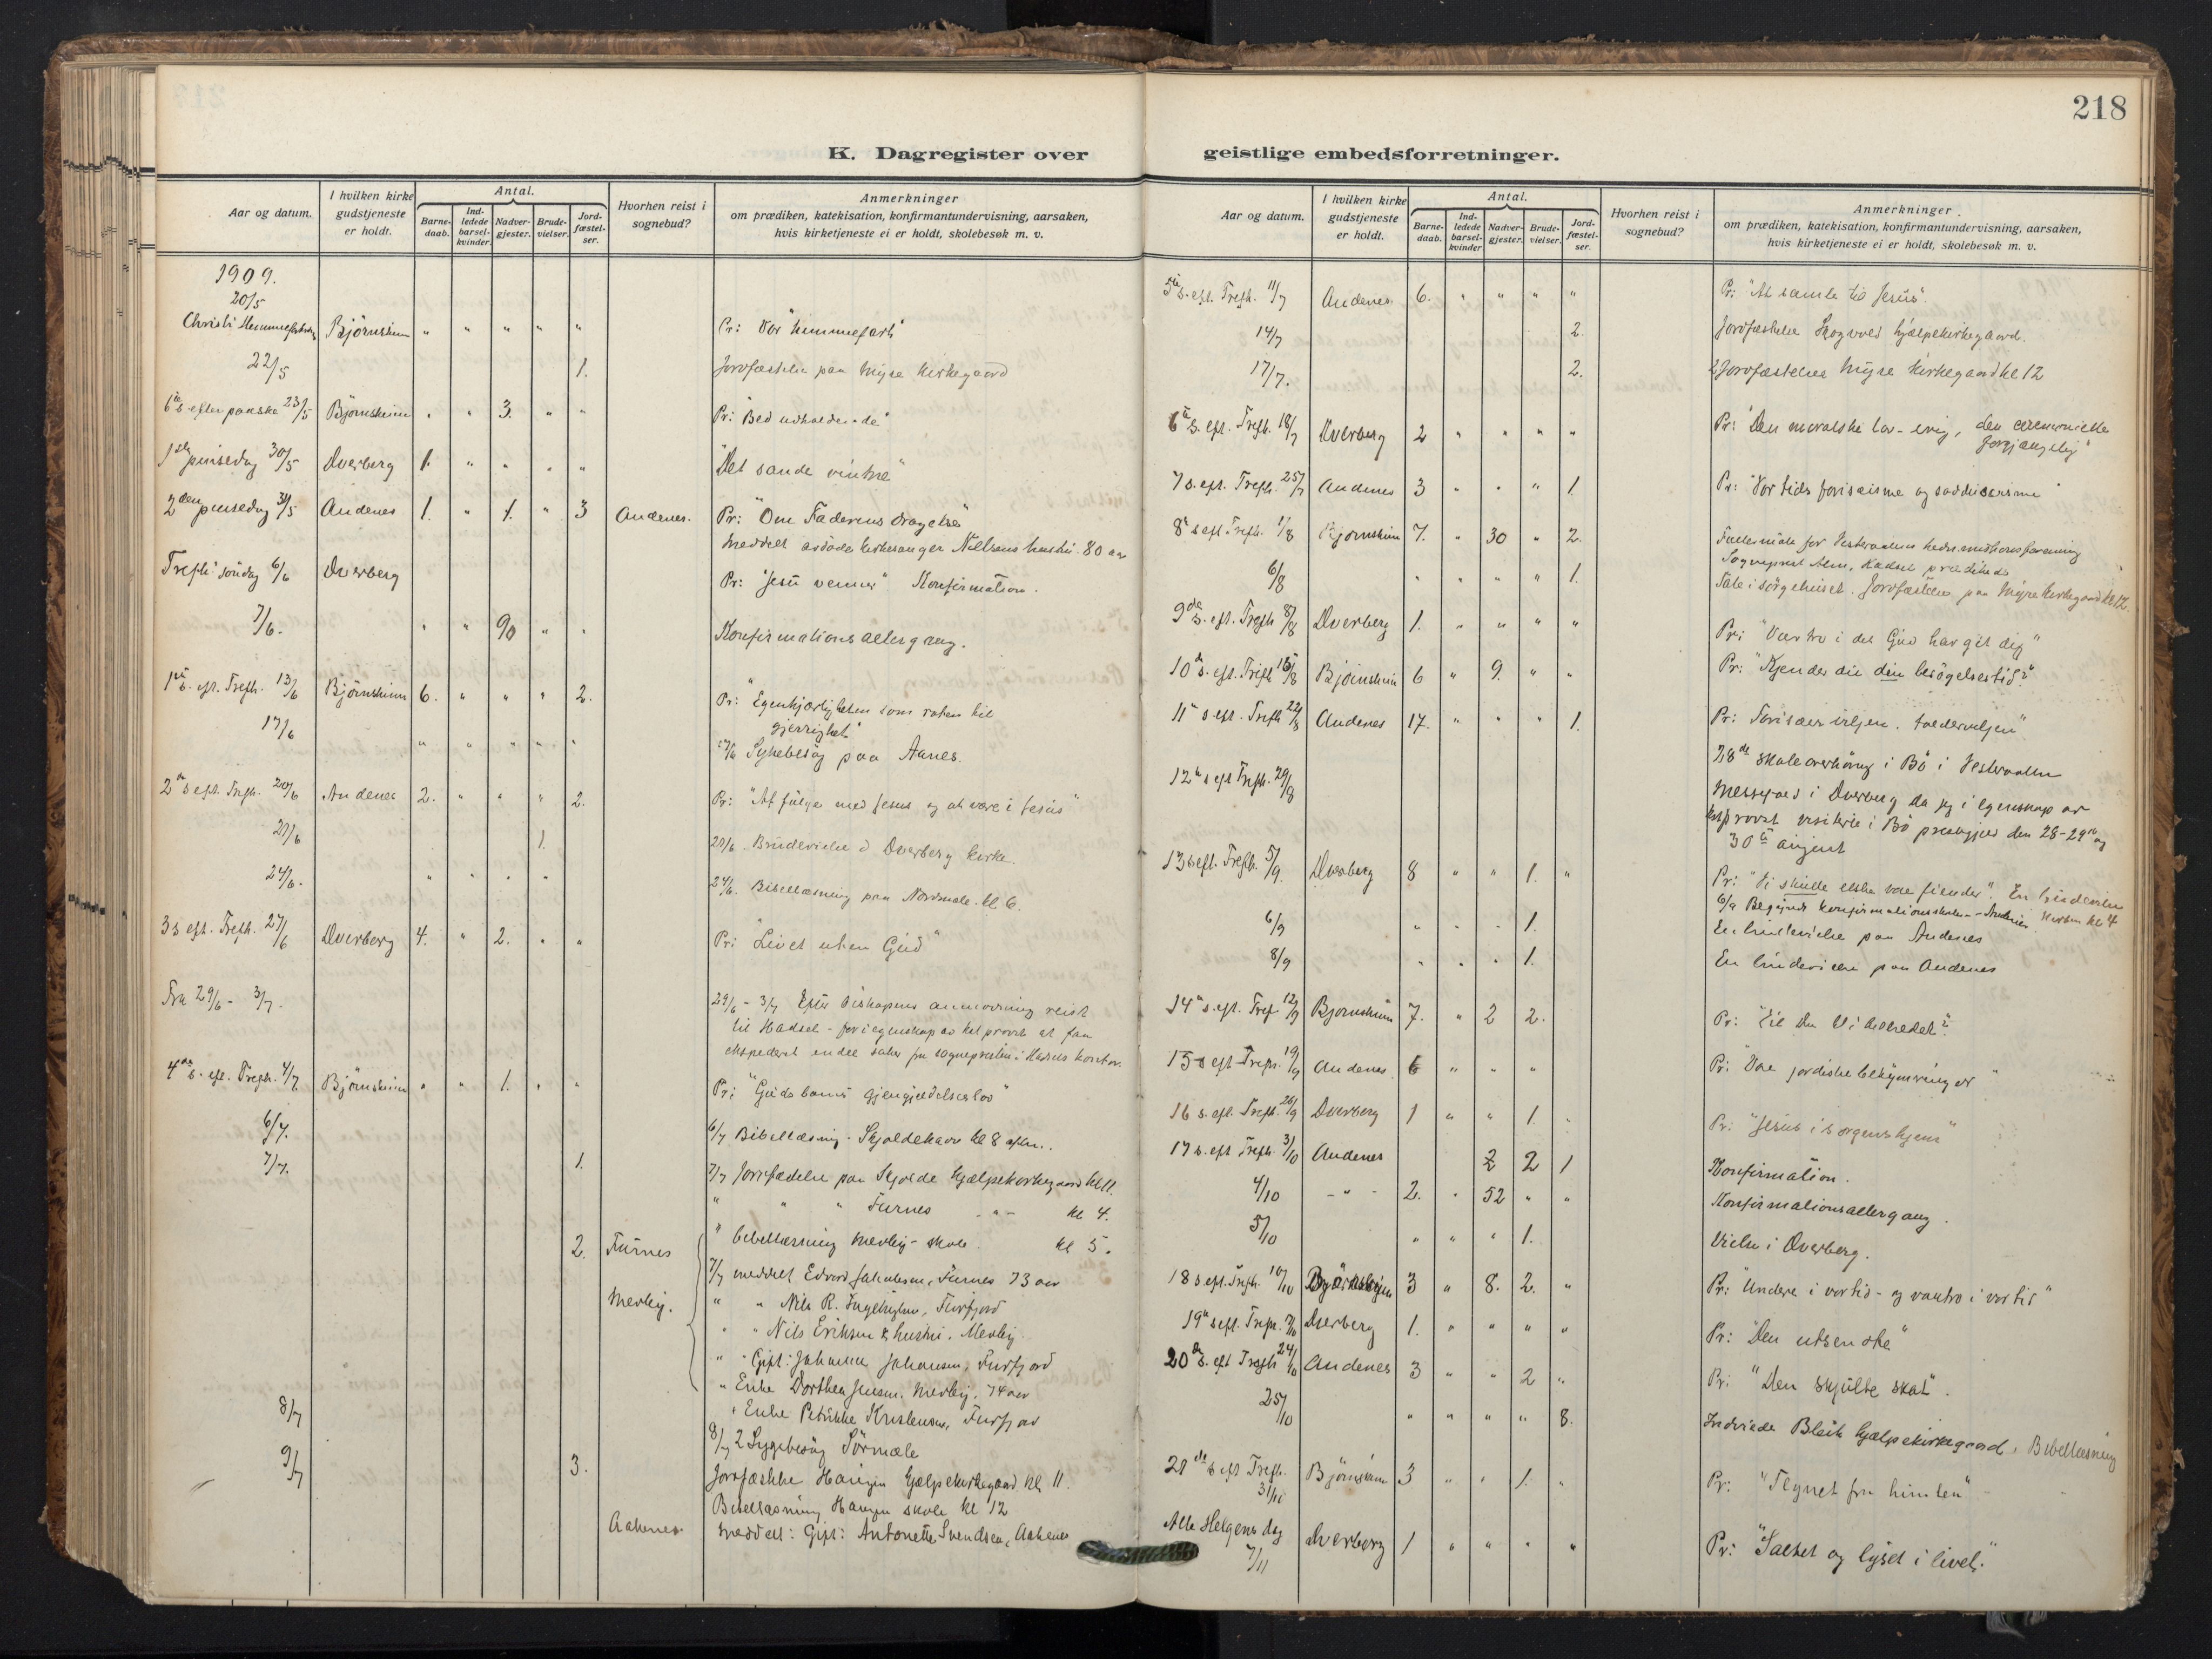 218
K. Dagregister over
geistlige embedsforretninger.
Aar og datum.
I hvilken kirke gudstjeneste er holdt.
Antal.
Barne-daab.
Ind-ledede barsel-kvinder.
Nadver-gjester.
Brude-vielser.
Jord-fæstel-ser.
Hvorhen reist i sognebud?
Anmerkninger
om prædiken, katekisation, konfirmantundervisning, aarsaken,
hvis kirketjeneste ei er holdt, skolebesøk m. v.
1909.
20/5
Christi Bjørnskinn " " " " " Pr: "Vor himmelfart"
22/5 1. Jordfæstelse paa Myre Kirkegaard
6te s. efter paaske 23/5 Bjørnskinn " " 3. " " Pr: "Bed udholdende"
1ste pinsedag 30/5 Dverberg 1. " " " " "Det sande vintræ"
2den pinsedag 31/5 Andenes 1. " 1. " 3 Andenes. Pr: "Om Faderens dragelse"
Meddelt Kirkesanger Nielsens hustru 80 aar
Trefh. søndag 6/6 Dverberg Pr: "Jesu venner" Konfirmation.
7/6. " " 90 " " Konfirmationsaltergang.
1ste s. eft. Trefh. 13/6 Bjørnskinn 6. " " " 2. Pr: "Egenkjærligheten som roten til
gjerrighet"
17/6 " " " " " 17/6 Sykebesøg paa Aanes.
2den s eft. Trefh. 20/6 Andenes 2. " " " 2. Pr: "At følge med Jesus og at være i Jesus"
21/6 1. 21/6. Brudevielse i Dverberg Kirke.
24/6. " " " " 24/6. Bibellæsning paa Nordmæle. kl 6.
3 s eft. Trefh. 27/6 Dverberg 4. " 2. " " Pr: "Livet uten Gud"
Fra 29/6 - 3/7. 29/6 - 3/7 Efter biskopens anmodning reist
til Hadsel - for i egenskap av kst provst at faa
ekspederet endel saker fra sogneprestens i Hadsel kontor.
4de s. eft. Trefh. 4/7 Bjørnskinn " " 1. " " Pr: "Guds barns gjengjældelseslov"
6/7. 6/7 Bibellæsning. Skjoldehavn kl 8 eftm.
7/7. 1. 7/7 Jordfæstelse paa Skjolde Hjælpekirkegaard kl 11.
" " " Furnes - " - kl 4.
2. Furnes " bibellæsning Medby - skole kl 5.
7/7 meddelt Edvard Jakobsen, Furnes 73 aar
Medby. " " Nils R. Ingebrigtsen, Furfjord
" " Nils Eriksen & hustru, Medby.
" " Gift: Johanna Johansen, Furfjord
" Enke Dorthea Jensen, Medby, 74 aar
8/7 " Enke Petrikke Kristensen, Furfjord
8/7 2 Sygebesøg Sørmæle
9/7 3. Jordfæstelse Haugen Hjælpekirkegaard kl 11.
Bibellæsning Haugen skole kl 12
Aakenes. Meddelt: Gift: Antonette Svendsen, Aakenes
5te s. eft. Trefh. 11/7 Andenes 6. " " " " Pr: "At samle til Jesus".
14/7 2. Jordfæstelse Skogvold Hjælpekirkegaard.
17/7. 2. 2 Jordfæstelser Myre Kirkegaard kl 12
6te s. eft. Trefh. 18/7 Dverberg 2 " " " " Pr: "Den moralske lov - evig, den ceremonielle
forgjængelig"
7 s. eft. Trefh. 25/7 Andenes 3 " " " 1. Pr: "Vor tids fariseisme og sadducæisme"
8de s eft. Trefh. 1/8 Bjørnskinn 7. " 30 " 2. Fællesmøte for Vesteraalens
Sogneprest Alm, Hadsel prædikede
6/8 " " " " 1. Tale i sørgehuset. Jordfæstelse paa Myre Kirkegaard kl 12.
9de s. eft. Trefh 8/8 Dverberg 1. " " " " Pr: "Vær tro i det Gud har git dig"
10de s. eft. Trefh 15/8 Bjørnskinn 6 " 9. " " Pr: "Kjender du din besøgelsestid?"
11te s eft. Trefh 22/8 Andenes 17. " " " 1. Pr: "Farisæerviljen. tolderviljen"
12te s eft Trefh. 29/8 28de skoleoverhøring i Bø i Vesteraalen
Messefald i Dverberg da jeg i egenskap av
kst provst visiterte i Bø prestegjeld den 28-29de og
30te august
13 s eft. Trefh. 5/9. Dverberg 8 " " 1. " Pr: "Vi skulle elske vore fiender". En brudevielse
6/9 Begyndt konfirmationsskolen - Andenes Kirken kl 4
6/9 " " " 1. En brudevielse paa Andenes
8/9 " " " 1. En brudevielse paa Andenes
14de s. eft. Tref 12/9 Bjørnskinn 7. " 2 2.
15 s eft Trefh. 19/9 Andenes 6 " " " Pr: "Vore jordiske bekymringer"
16 s. eft. Trefh. 26/9 Dverberg 1 " " 1. " Pr: "Jesus i sorgens hjem"
17 s. eft Trefh. 3/10 Andenes 2 2 1 Konfirmation.
4/10 - " - 2. " 52 " " Konfirmationsaltergang.
5/10 " " " 1. Vielse i Dverberg.
18 s eft. Trefh. 10/10 Bjørnskinn 3 " 8. 2. " Pr: "Undere i vor tid - og vantro i vor tid"
19de s eft. Trefh. Dverberg 1. " " " " Pr: "Den utsendte"
20de s. eft Trefh 24/10 Andenes 3 " " 2 " Pr: "Den skjulte skat".
25/10 " " " " 8. Indviede Bleik hjælpekirkegaard, Bibellæsning
21de s eft Trefh. 31/10 Bjørnskinn 3 " " 1. " Pr: "Tegnet fra himlen"
Alle Helgens dag 7/11 Dverberg 1 " " " " Pr: "Saltet og lyset i livet."